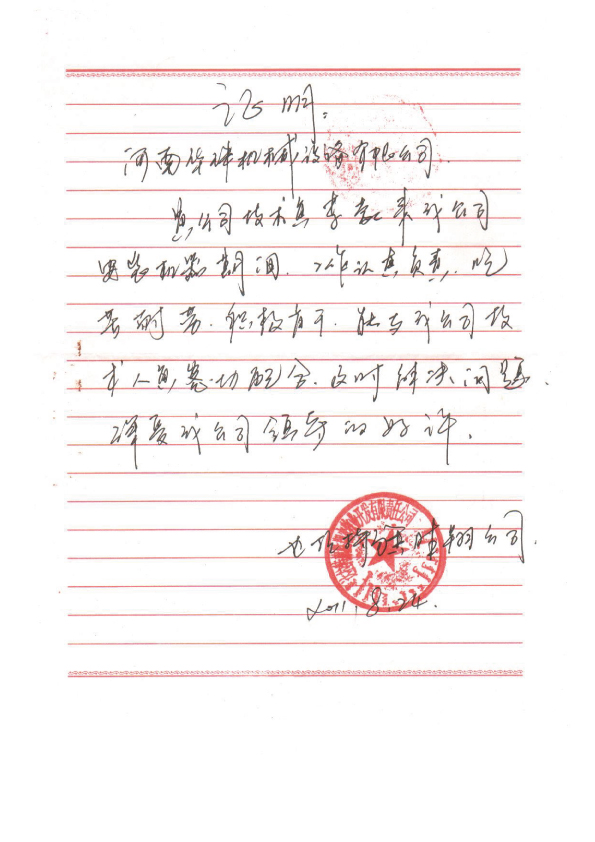 证明.
河南 机械设备有限公司.
贵公司技术员李 来我公司
安装机器期间.工作认真负责.吃
苦耐劳. 能与我公司技
术人员密切配合.及时解决问题.
深受我公司领导的好评.
公司.
2011.8.24.
开发有限责任公司